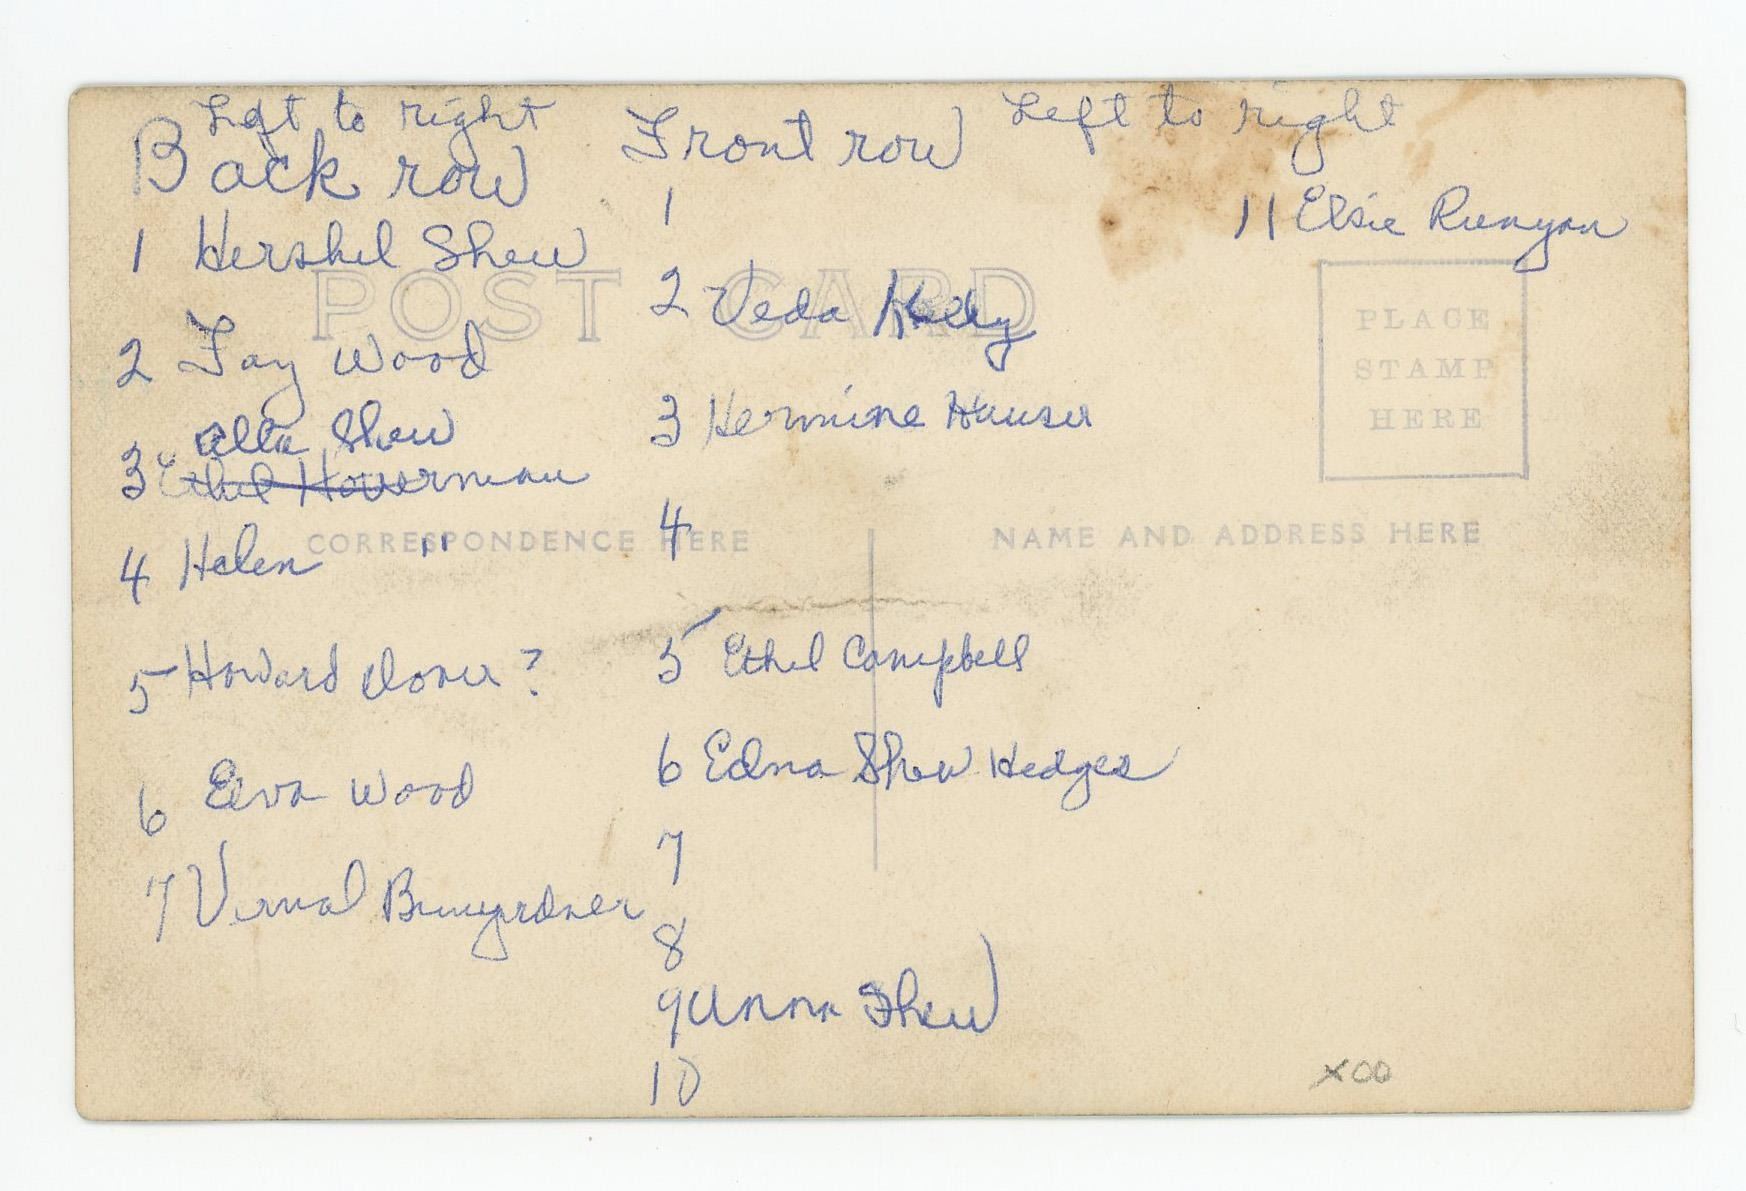 Left to right
Back row
1 Hershel Shew
2 Fay Wood
Alta Shew
3 Ethel Hoverman
4 Helen "
5 Howard ?
6 Elva Wood
7 Vernal Bumgardner
Front row Left to right
1
2 Veda
3 Hermine Hauser
4
5 Ethel Campbell
6 Edna Shew Hedges
7
8
9 Anna Shew
10
11 Elsie Runyan
POST CARD
PLACE
STAMP
HERE
CORRESPONDENCE HERE
NAME AND ADDRESS HERE
X00